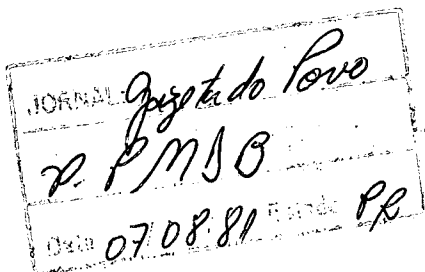 JORNAL: Gazeta do Povo
P. PMDB
Data 07/08/81 Estado PR